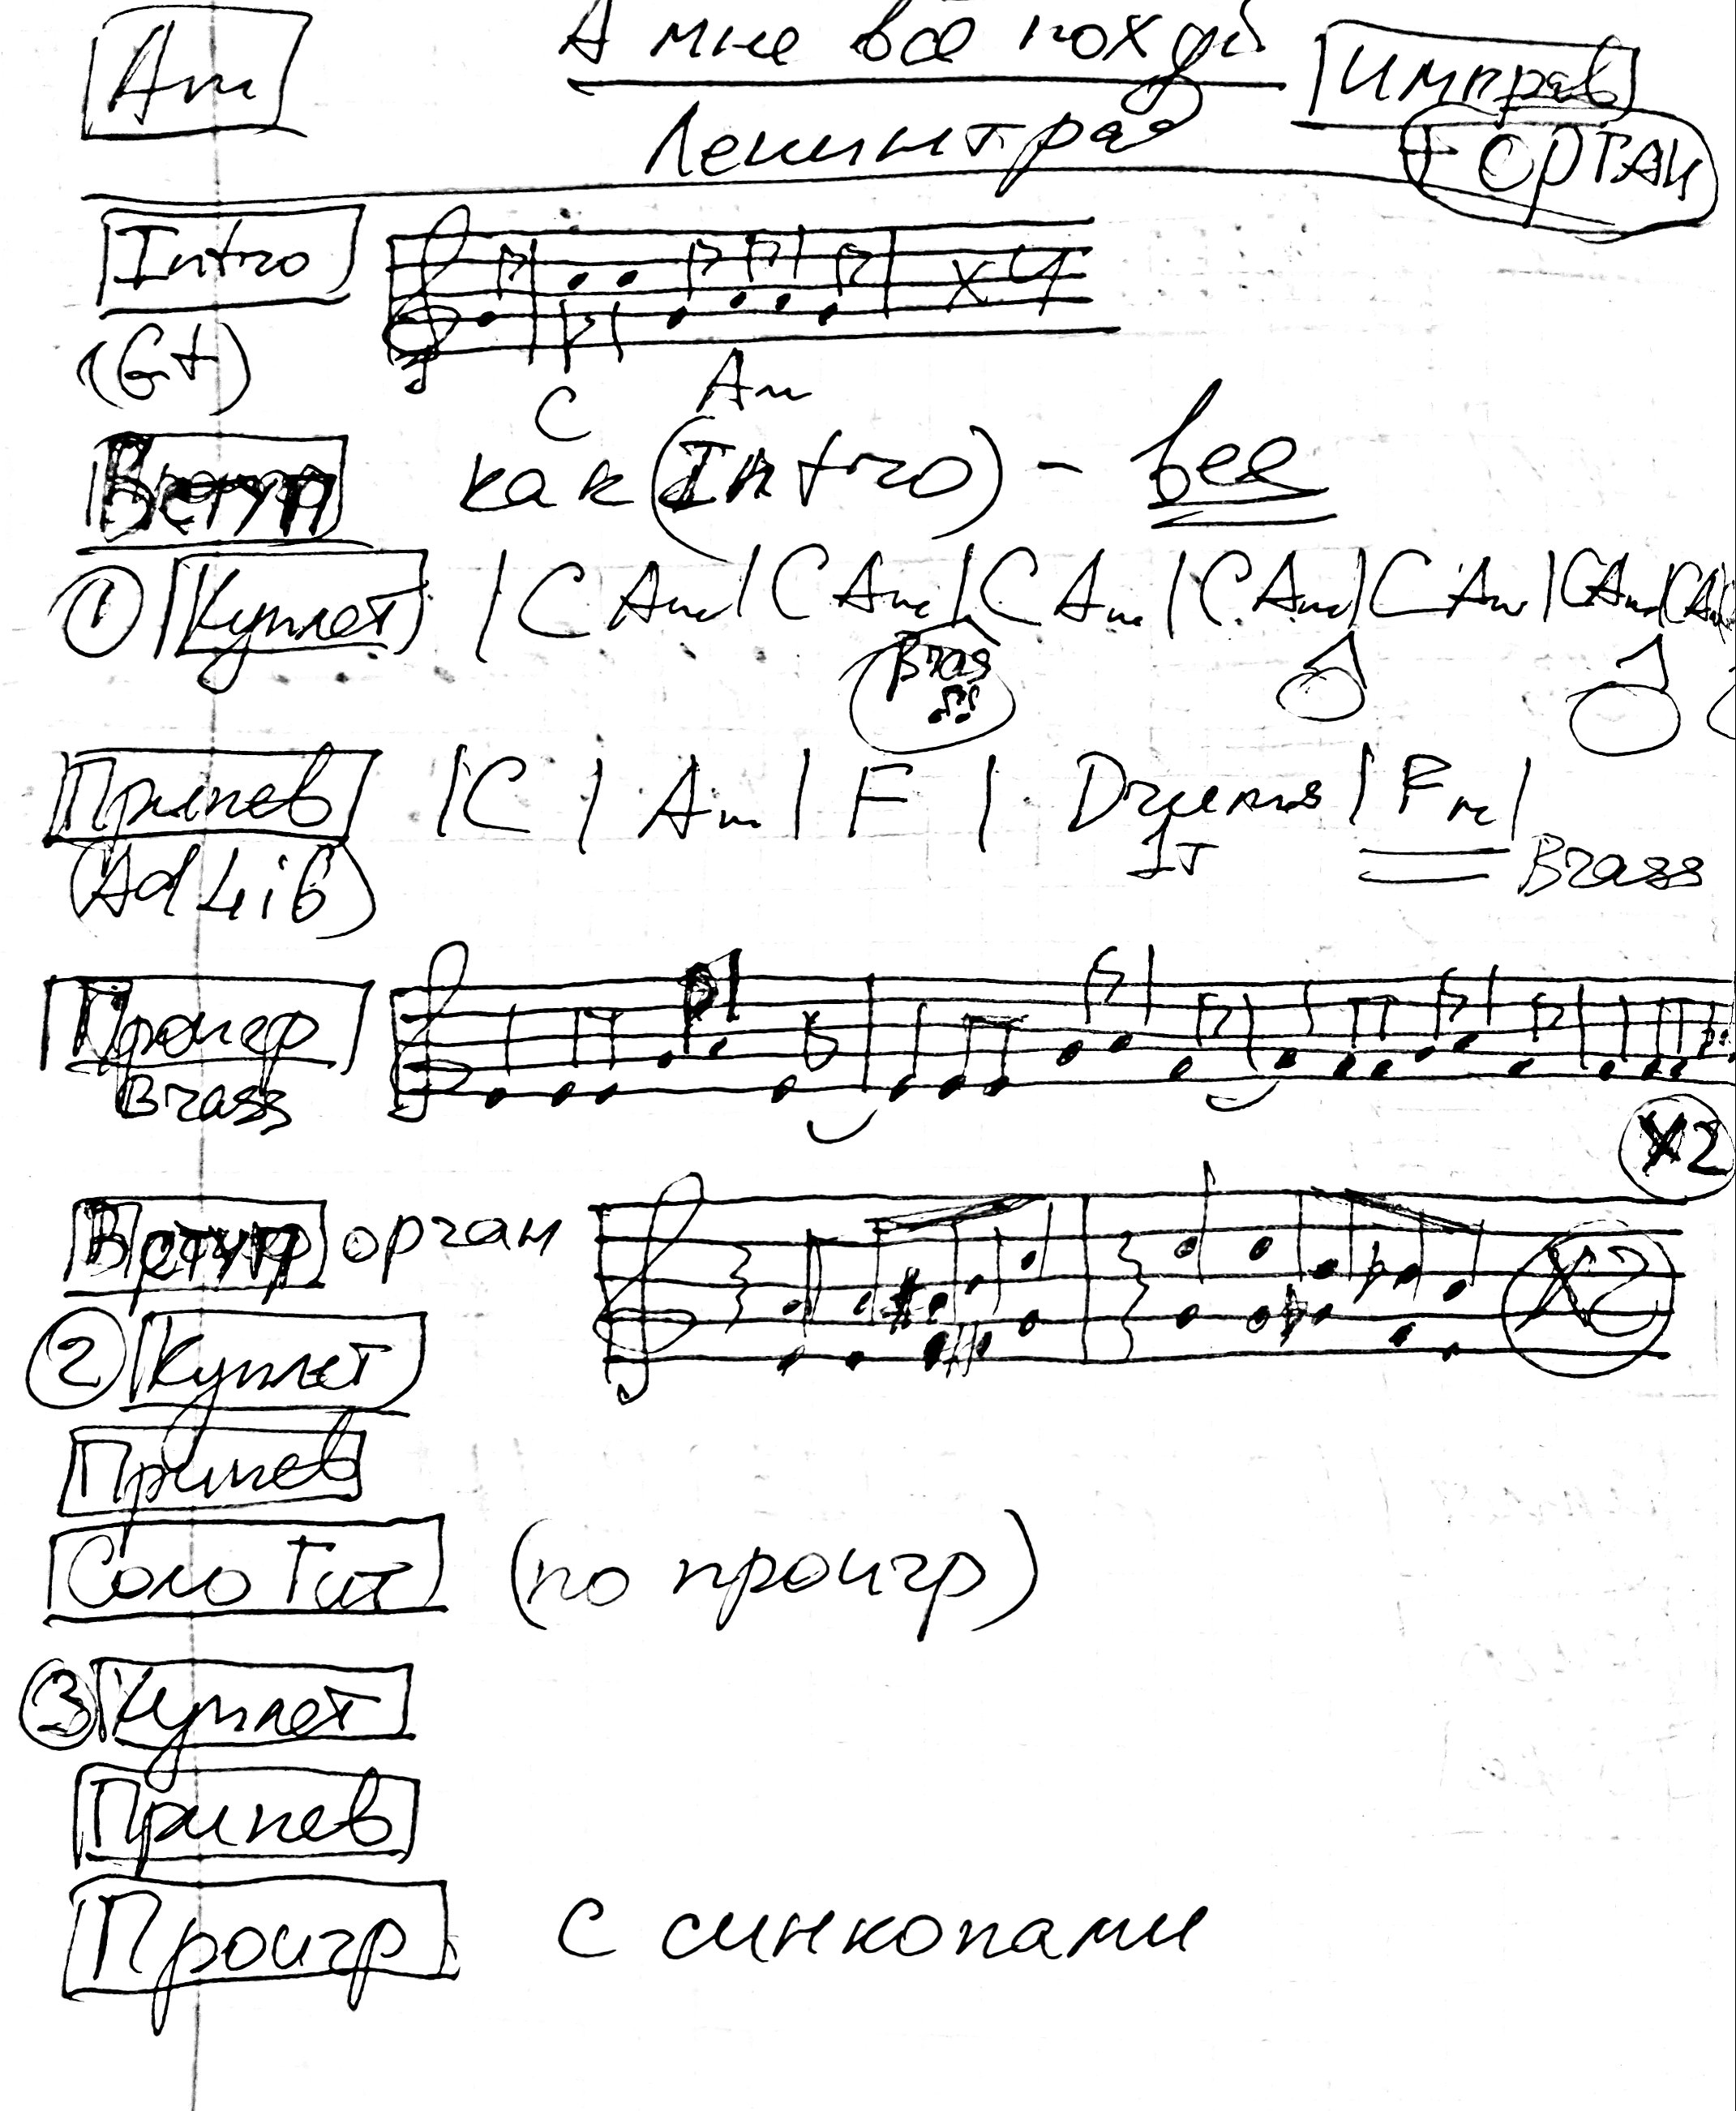 Am А мне всё похуй Импров
Ленинград + ОРГАН
Intro x4
(Gt) C Am
Вступ как (Intro) - все
① Куплет | C Am | C Am | C Am | C Am | C Am | C Am | C Am |
Brass
Припев | C | Am | F | Drums | Fm |
(Ad Lib) 1т Brass
Проигр
Brass
X2
Вступ орган X2
② Куплет
Припев
Соло Гит (по проигр)
③ Куплет
Припев
Проигр с синкопами